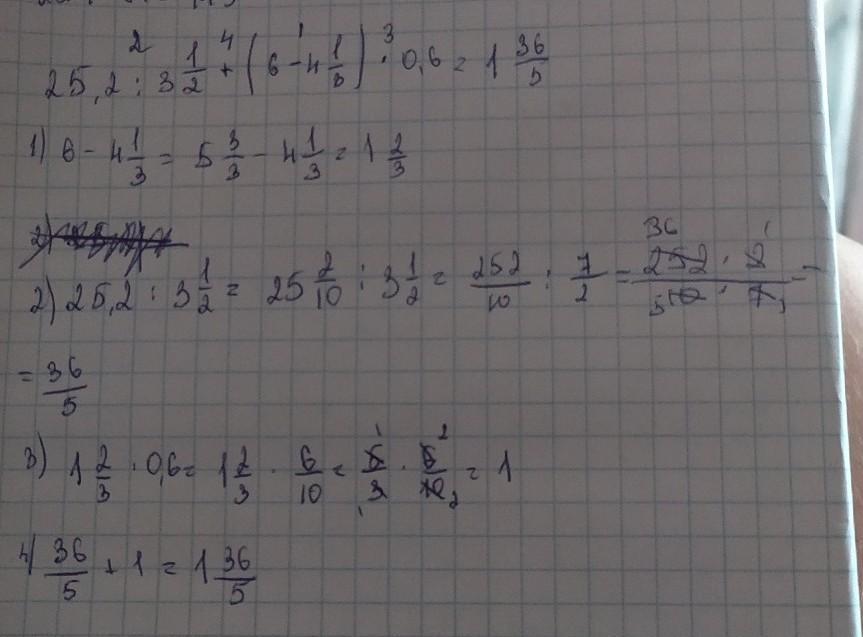 25,2 : 3 1/2 + (6 - 4 1/3) · 0,6 = 1 36/5
1) 6 - 4 1/3 = 5 3/3 - 4 1/3 = 1 2/3
2) 25,2 : 3 1/2 = 25 2/10 : 3 1/2 = 252/10 : 7/2 = 252 · 2/10 · 7 =
= 36/5
3) 1 2/3 · 0,6 = 1 2/3 · 6/10 = 5/3 · 6/10 = 1
4) 36/5 + 1 = 1 36/5